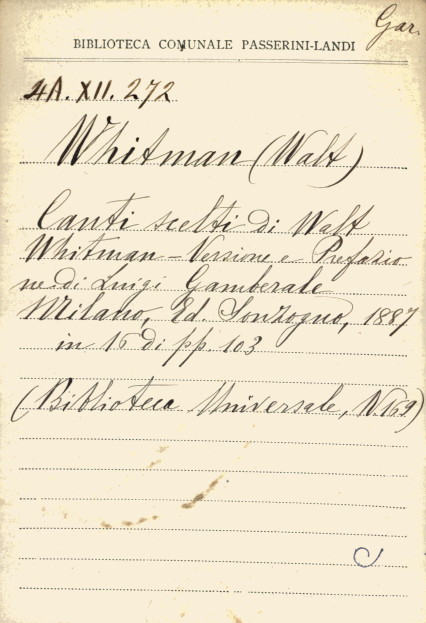 Gar.
BIBLIOTECA COMUNALE PASSERINI-LANDI
4A. XII. 272
Whitman (Walt)
Canti scelti di Walt
Whitman - Versione e Prefazio
ne di Luigi Gamberale
Milano, Ed. Sonzogno, 1887
in 16 di pp. 103
(Biblioteca Universale, N. 169)